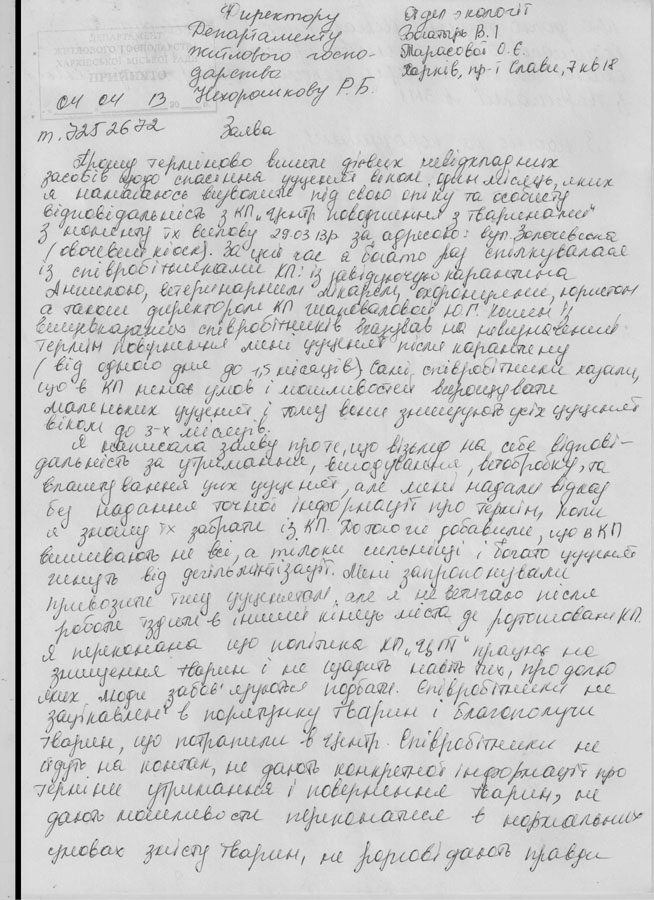 Директору
Департаменту
житлового госпо-
дарства
Нехорошкову Р.Б.
Отдел экологіі
Богатирь В.І
Тарасової О.Є.
Харків, пр-т Слави, 7 кв 18
ДЕПАРТАМЕНТ
ЖИТЛОВОГО ГОСПОДАРСТВА
ХАРКІВСЬКОЇ МІСЬКОЇ РАДИ
ПРИЙНЯТО
04 04 13
т. 7252672
Заява
Прошу терміново вжити дієвих невідкладних
засобів щодо спасіння цуценят віком один місяць, яких
я намагаюсь визволити під свою опіку та особисту
відповідальність з КП „Центр поводження з тваринами"
з моменту їх вилову 29.03 13р. за адресою: вул. Золочевська
(овочевий кіоск). За цей час я багато раз спілкувалася
із співробітниками КП: із завідуючою карантина
Анжелою, ветеринарним лікарем, охоронцем, юристом
а також директором КП Шаповаловой Ю.Г. Кожен із
вищевказаних співробітників вказував на невизначений
термін повернення мені цуценят після карантину
(від одного дня до 1,5 місяців) Самі співробітники казали,
що в КП немає умов і можливостей вирощувати
маленьких цуценят і тому вони знищують усіх цуценят
віком до 3-х місяців.
Я написала заяву про те, що візьму на себе відпові-
дальність за утримання, вигодування, ветобробку, та
влаштування цих цуценят, але мені надали відказ
без надання точної інформації про термін, коли
я зможу їх забрати із КП. Потом же добавили, що в КП
виживають не всі, а тільки сильніші і багато цуценят
гинуть від дегільмінтізації. Мені запропонували
привозити їжу цуценятам, але я не встигаю після
роботи їздити в інший кінець міста де розташован КП.
Я переконана що політика КП „ЦПТ" працює на
знищення тварин і не щадить навіть тих, про долю
яких люди забов'язуються подбати. Співробітники не
зацікавлені в порятунку тварин і благополучи
тварин, що потрапили в Центр. Співробітники не
йдуть на контак, не дають конкретної інформації про
терміни утримання і повернення тварин, не
дають можливости переконатися в нормальних
умовах змісту тварин, не розповідають правди